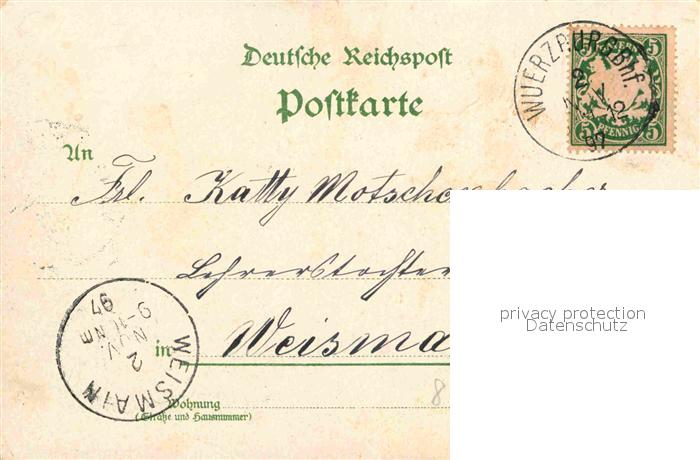 Deutsche Reichspost
Postkarte
WUERZBURG Bhf.
2 NOV
12
97
5 5
5 PFENNIG 5
An
Frl. Katty Motschenbacher
Lehrerstochter
in Weisma
WEISMAIN
2
NOV.
9-11 NM
97
Wohnung
(Straße und Hausnummer)
8
privacy protection
Datenschutz